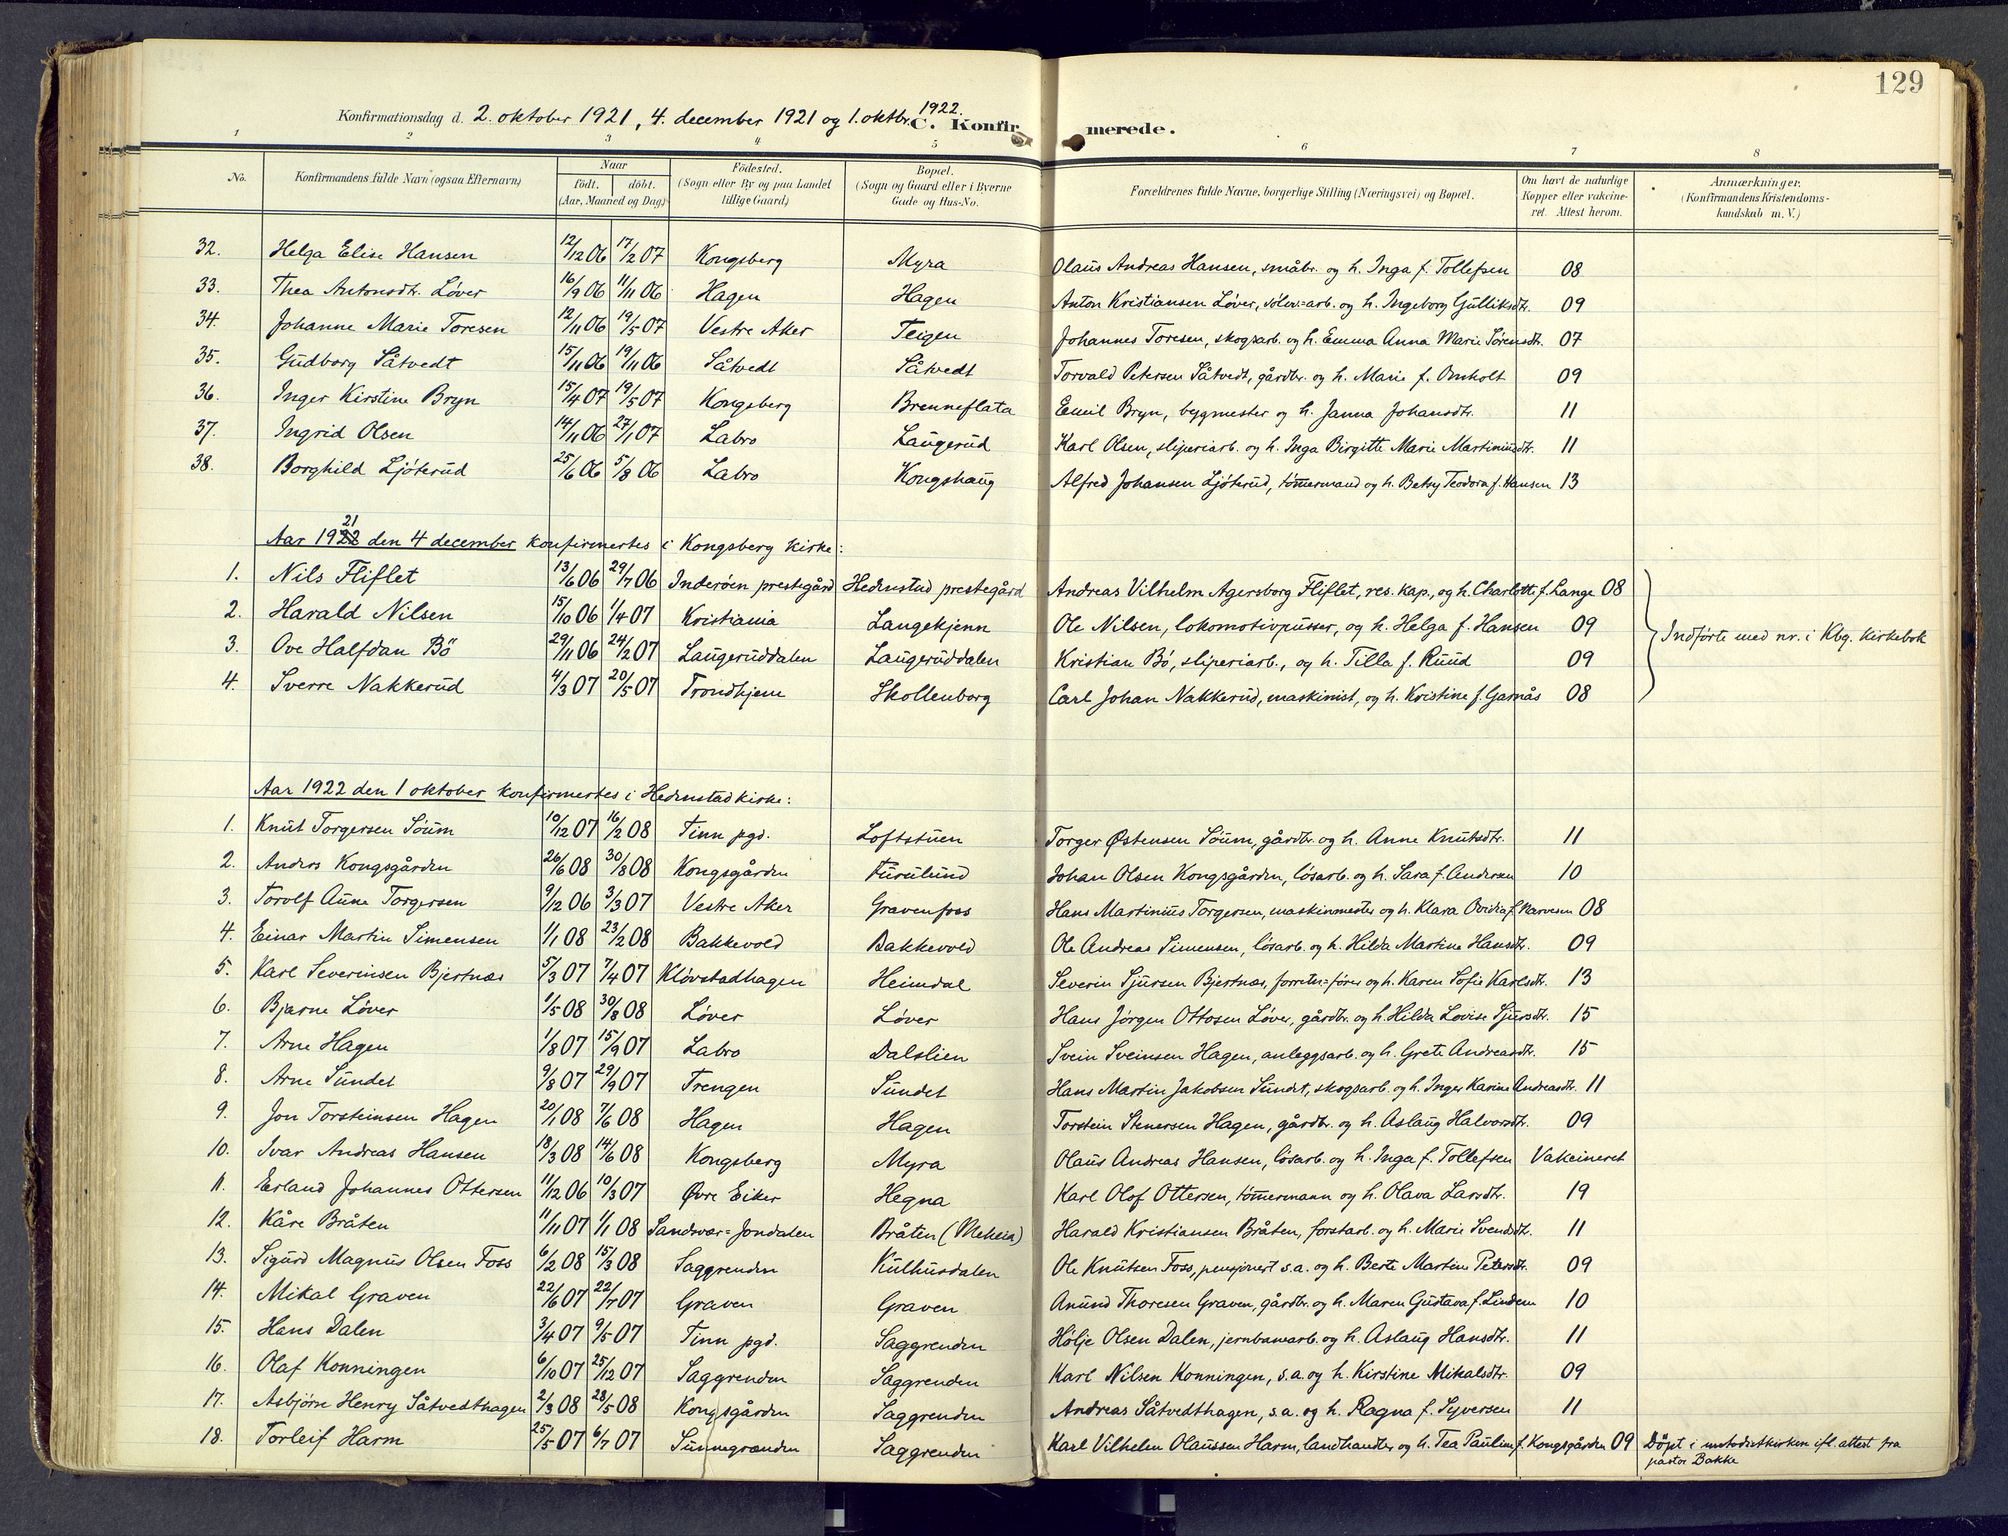 129
1922.
Konfirmationsdag d. 2. oktober 1921, 4. december 1921 og 1. oktbr. C. Konfirmerede.
1 2 3 4 5 6 7 8
No. Konfirmandens fulde Navn (ogsaa Efternavn) Naar födt. döbt. (Aar, Maaned og Dag) Födested. (Sogn eller By og paa Landet tillige Gaard) Bopæl. (Sogn og Gaard eller i Byerne Gade og Hus-No. Forældrenes fulde Navne, borgerlige Stilling (Næringsvei) og Bopæl. Om havt de naturlige Kopper eller vakcineret. Attest herom. Anmærkninger. (Konfirmandens Kristendomskundskab m. V.)
32. Helga Elise Hansen 12/12 06 17/2 07 Kongsberg Myra Olaus Andreas Hansen, småbr. og h. Inga f. Tollefsen 08
33. Thea Antonsdtr. Löver 16/9 06 11/11 06 Hagen Hagen Anton Kristiansen Löver, sölvv.=arb. og h. Ingeborg Gulliksdtr. 09
34. Johanne Marie Toresen 12/11 06 19/5 07 Vestre Aker Teigen Johannes Toresen, skogsarb. og h. Emma Anna Marie Sörensdtr. 07
35. Gudborg Såtvedt 15/11 06 19/11 06 Såtvedt Såtvedt Torvald Petersen Såtvedt, gårdbr. og h. Marie f. Omholt 09
36. Inger Kirstine Bryn 15/4 07 19/5 07 Kongsberg Brenneflata Emil Bryn, bygmester og h. Janna Johansdtr. 11
37. Ingrid Olsen 14/11 06 27/1 07 Labro Laugerud Karl Olsen, sliperiarb. og h. Inga Birgitte Marie Martiniusdtr. 11
38. Borghild Ljöterud 25/6 06 5/8 06 Labro Kongshaug Alfred Johansen Ljöterud, tömmermand og h. Betsy Teodora f. Hansen 13
Aar 1922 21 den 4 december konfirmertes i Kongsberg Kirke:
1. Nils Fliflet 13/6 06 29/7 06 Inderöen prestegård Hedenstad prestegård Andreas Vilhelm Agersborg Fliflet, res. kap., og h. Charlotte f. Lange 08
2. Harald Nilsen 15/10 06 1/4 07 Kristiania Langekjenn Ole Nilsen, lokomotivpusser, og h. Helga f. Hansen 09 Indförte med nr. i Kbg. kirkebok
3. Ove Halfdan Bö 29/11 06 24/2 07 Laugeruddalen Laugeruddalen Kristian Bö, sliperiarb., og h. Tilla f. Ruud 09
4. Sverre Nakkerud 4/3 07 20/5 07 Trondhjem Skollenborg Carl Johan Nakkerud, maskinist, og h. Kristine f. Garnås 08
Aar 1922 den 1 oktober konfirmertes i Hedenstad kirke:
1. Knut Torgersen Söum 10/12 07 16/2 08 Tinn pgd. Loftstuen Torger Østensen Söum, gårdbr. og h. Anne Knutsdtr. 11
2. Anders Kongsgården 26/6 08 30/8 08 Kongsgården Furulund Johan Olsen Kongsgården, lösarb. og h. Sara f. Andersen 10
3. Torolf Aune Torgersen 9/12 06 3/3 07 Vestre Aker Gravenfoss Hans Martinius Torgersen, maskinmester og h. Klara Ovidia f. Narvesen 08
4. Einar Martin Simensen 1/1 08 23/2 08 Bakkevold Bakkevold Ole Andreas Simensen, lösarb. og h. Hilda Martine Hansdtr. 09
5. Karl Severinsen Bjertnæs 5/3 07 7/4 07 Klövstadhagen Heimdal Severin Sjursen Bjertnæs, forretn=förer og h. Karen Sofie Karlsdtr. 13
6. Bjarne Löver 1/5 08 30/8 08 Löver Löver Hans Jörgen Ottosen Löver, gårdbr. og h. Hilda Lovise Sjursdtr. 15
7. Arne Hagen 1/8 07 15/9 07 Labro Dalslien Svein Sveinsen Hagen, anleggsarb. og h. Grete Andreasdtr. 15
8. Arne Sundet 9/8 07 29/9 07 Trengen Sundet Hans Martin Jakobsen Sundet, skogsarb. og h. Inger Karine Andreasdtr. 11
9. Jon Torsteinsen Hagen 20/1 08 7/6 08 Hagen Hagen Torstein Stenersen Hagen, gårdbr. og h. Aslaug Halvorsdtr. 09
10. Ivar Andreas Hansen 18/3 08 14/6 08 Kongsberg Myra Olaus Andreas Hansen, lösarb. og h. Inga f. Tollefsen Vakcineret
11. Erland Johannes Ottersen 11/12 06 10/3 07 Øvre Eiker Hegna Karl Olof Ottersen, tömmermann og h. Olava Larsdtr. 19
12. Kåre Bråten 11/11 07 1/1 08 Sandsvær=Jondalen Bråten (Meheia) Harald Kristiansen Bråten, forstarb. og h. Marie Svendsdtr. 11
13. Sigurd Magnus Olsen Foss 6/2 08 15/3 08 Saggrenden Kulhusdalen Ole Knutsen Foss, pensjonert s.a. og h. Berte Martine Petersdtr. 09
14. Mikal Graven 22/6 07 22/7 07 Graven Graven Anund Thoresen Graven, gårdbr. og h. Maren Gustava f. Lindem 10
15. Hans Dalen 3/4 07 9/5 07 Tinn pgd. Saggrenden Hölje Olsen Dalen, jernbanearb. og h. Aslaug Hansdtr. 11
16. Olaf Konningen 6/10 07 25/12 07 Saggrenden Saggrenden Karl Nilsen Konningen, s.a. og h. Kirstine Mikalsdtr. 09
17. Asbjörn Henry Såtvedthagen 2/3 08 28/5 08 Kongsgården Saggrenden Andreas Såtvedthagen, s.a. og h. Ragna f. Syversen 11
18. Torleif Harm 25/5 07 6/7 07 Sunnegranden Saggrenden Karl Vilhelm Olaussen Harm, landhandler og h. Tea Pauline f. Kongsgården 09 Döpt i metodistkirken ifl. attest fra
pastor Bakke